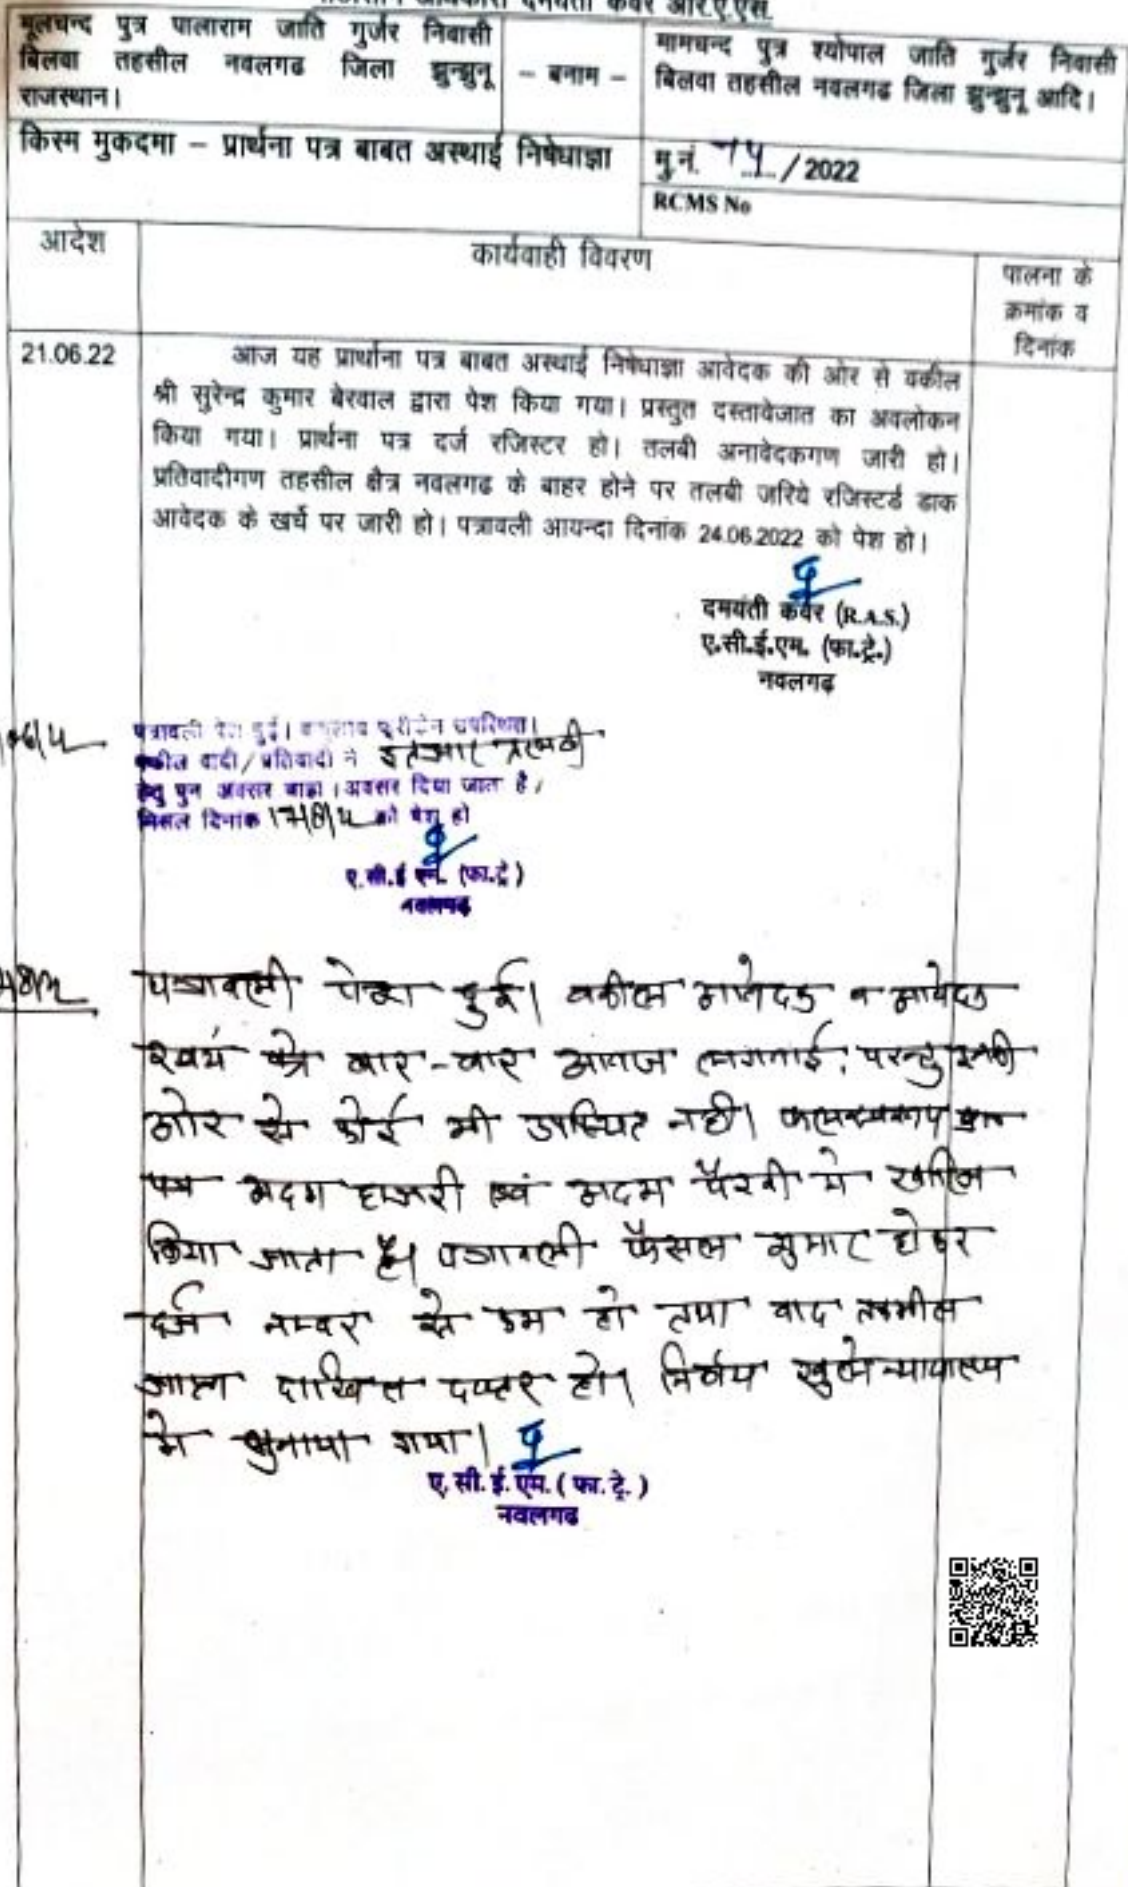 पीठासीन अधिकारी दमयंती कंवर आर.ए.एस.
मूलचन्द पुत्र पालाराम जाति गुर्जर निवासी
बिलवा तहसील नवलगढ जिला झुन्झुनू
राजस्थान।
- बनाम -
मामचन्द पुत्र श्योपाल जाति गुर्जर निवासी
बिलवा तहसील नवलगढ जिला झुन्झुनू आदि।
किस्म मुकदमा - प्रार्थना पत्र बाबत अस्थाई निषेधाज्ञा
मु.नं. /2022
RCMS No
आदेश
कार्यवाही विवरण
पालना के
क्रमांक व
दिनांक
21.06.22
आज यह प्रार्थाना पत्र बाबत अस्थाई निषेधाज्ञा आवेदक की ओर से वकील
श्री सुरेन्द्र कुमार बेरवाल द्वारा पेश किया गया। प्रस्तुत दस्तावेजात का अवलोकन
किया गया। प्रार्थना पत्र दर्ज रजिस्टर हो। तलबी अनावेदकगण जारी हो।
प्रतिवादीगण तहसील क्षैत्र नवलगढ के बाहर होने पर तलबी जरिये रजिस्टर्ड डाक
आवेदक के खर्चे पर जारी हो। पत्रावली आयन्दा दिनांक 24.06.2022 को पेश हो।
दमयंती कंवर (R.A.S.)
ए.सी.ई.एम. (फा.ट्रे.)
नवलगढ़
पत्रावली पेश हुई। उपस्थित।
वकील वादी/प्रतिवादी ने
हेतु पुन अवसर चाहा। अवसर दिया जाता है,
मिसल दिनांक को पेश हो
ए.सी.ई एम. (फा.ट्रे)
नवलगढ़
पत्रावली पेश हुई। वकील आवेदक व आवेदक
स्वयं को बार-बार आवाज लगवाई, परन्तु इनकी
ओर से कोई भी उपस्थित नहीं। फलस्वरूप
पत्र अदम हाजरी एवं अदम पैरवी मे खारिज
किया जाता है। पत्रावली फैसल शुमार होकर
दर्ज नम्बर से कम हो तथा बाद तकमील
दाखिल दफ्तर हो। निर्णय खुले न्यायालय
मे सुनाया गया।
ए.सी.ई.एम.(फा.ट्रे.)
नवलगढ